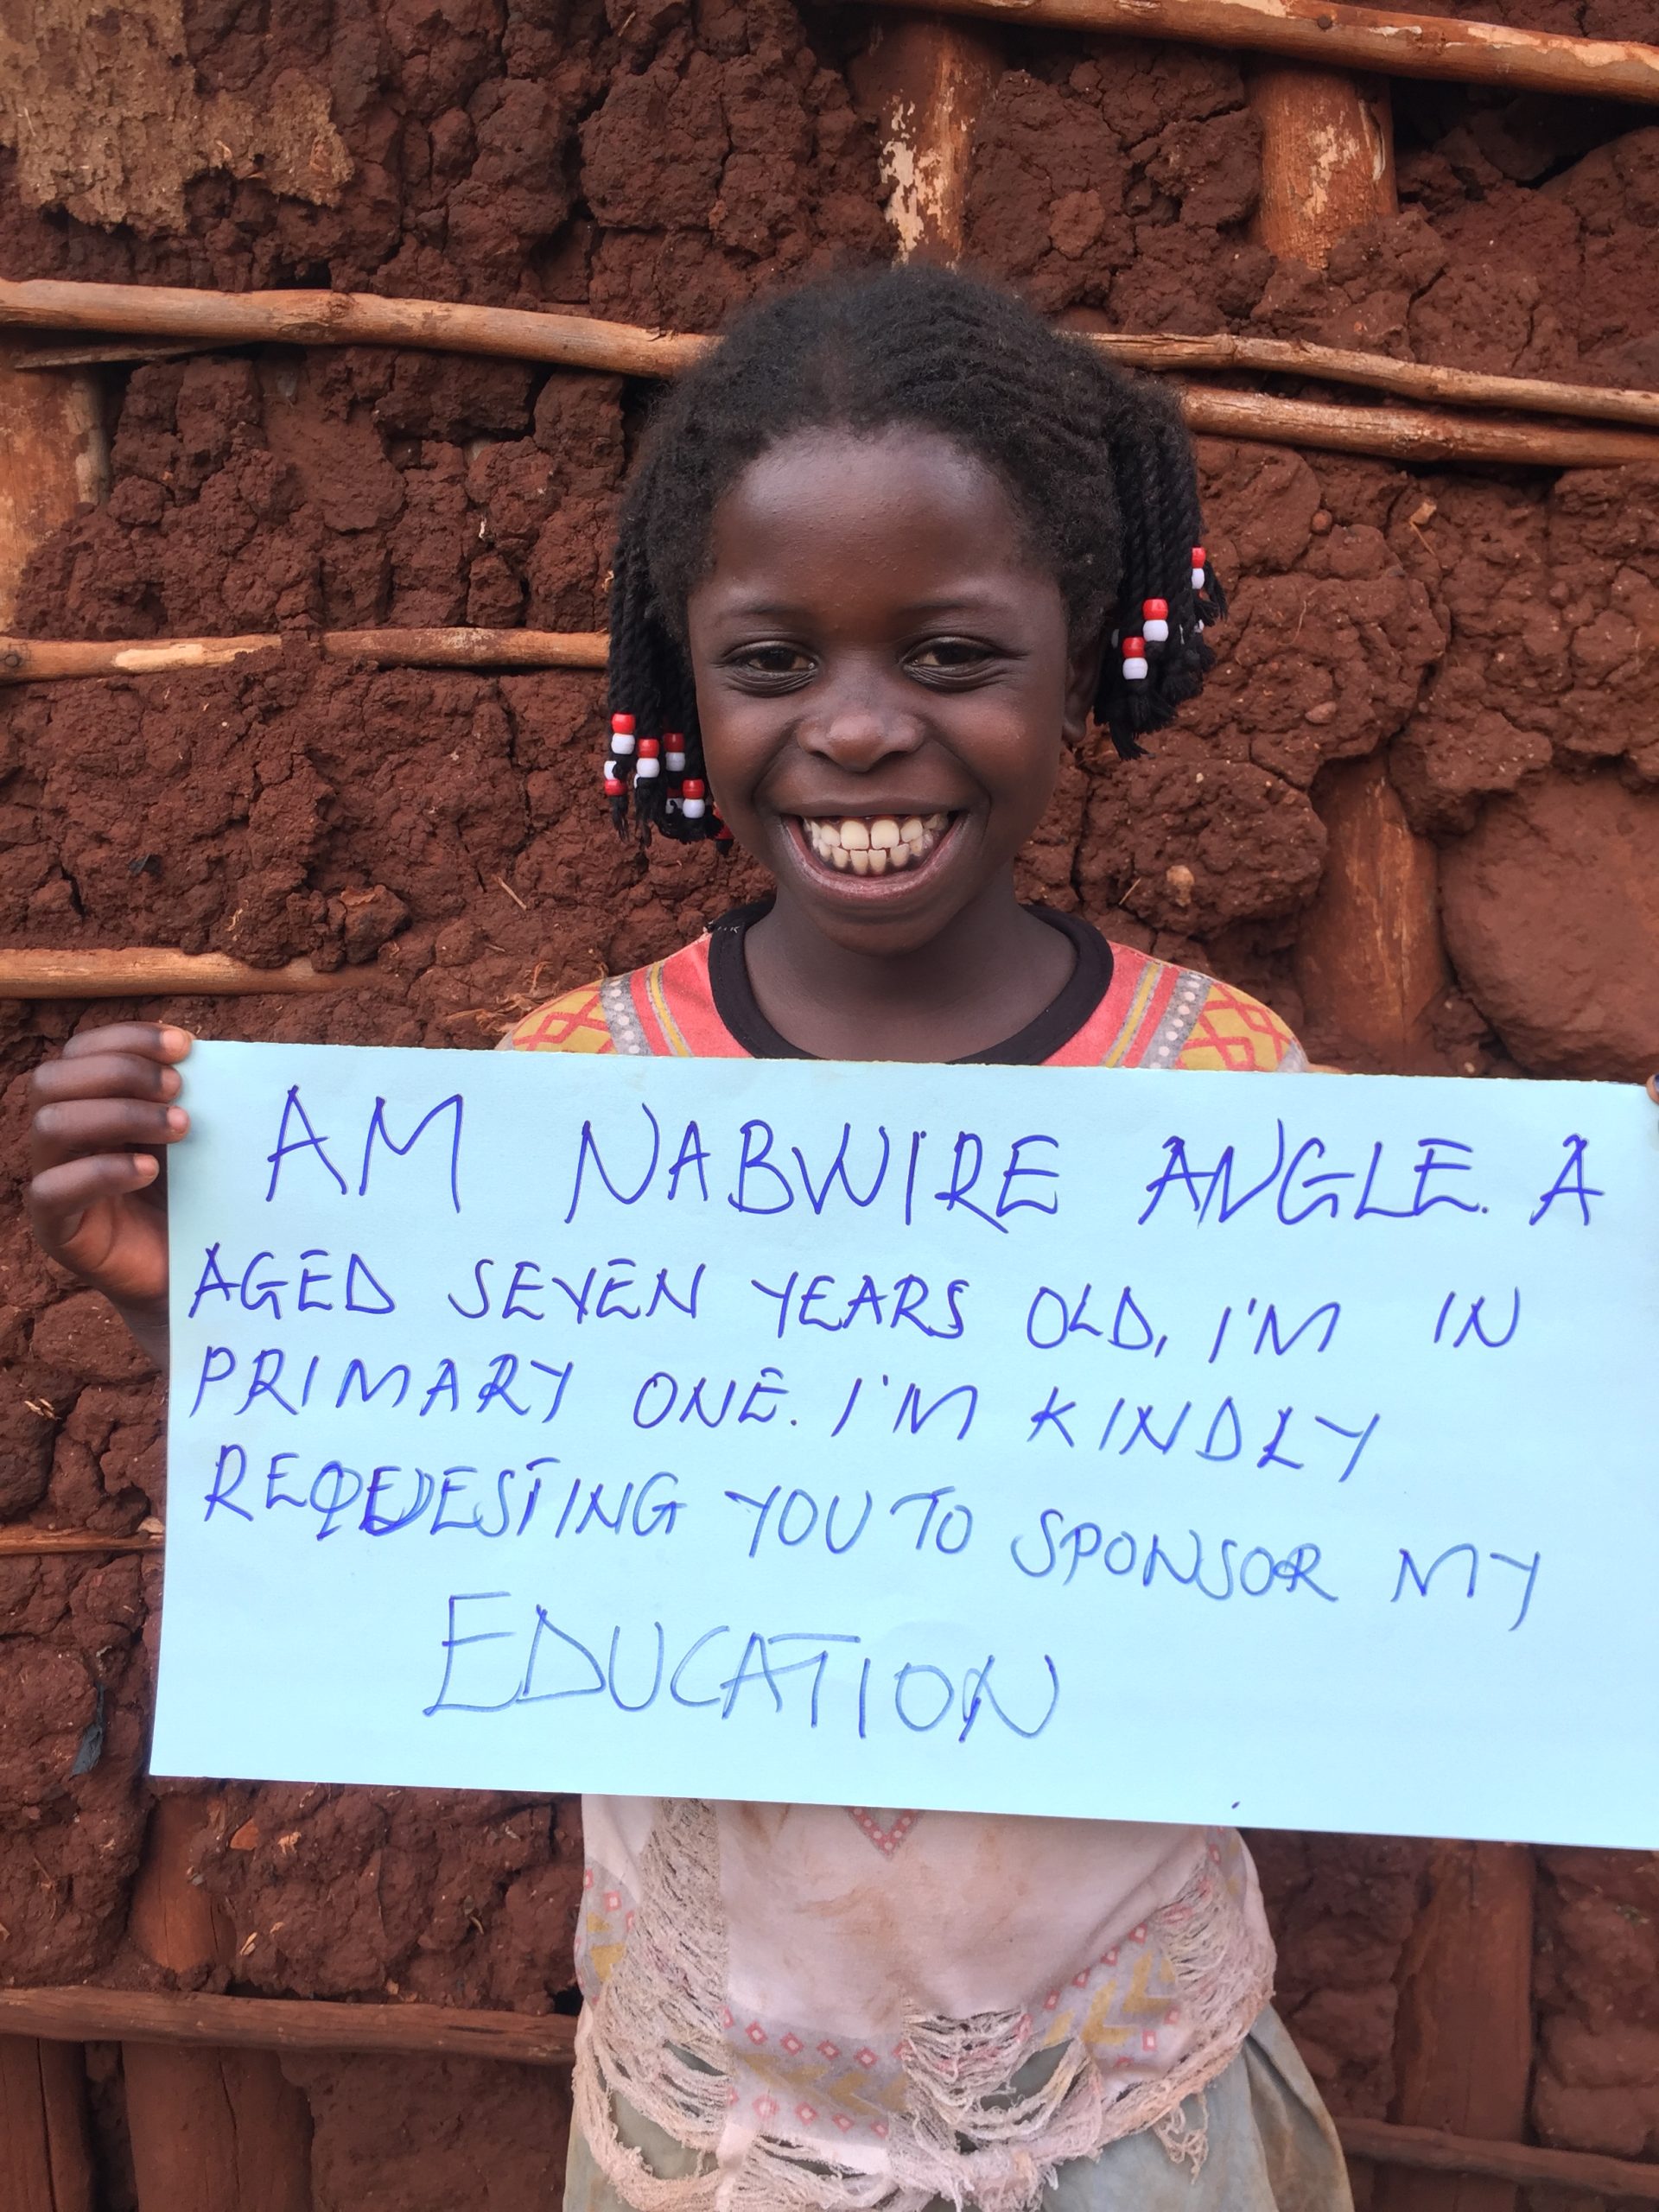 AM NABWIRE ANGLE. A
AGED SEVEN YEARS OLD, I'M IN
PRIMARY ONE. I'M KINDLY
YOU TO SPONSOR MY
EDUCATION